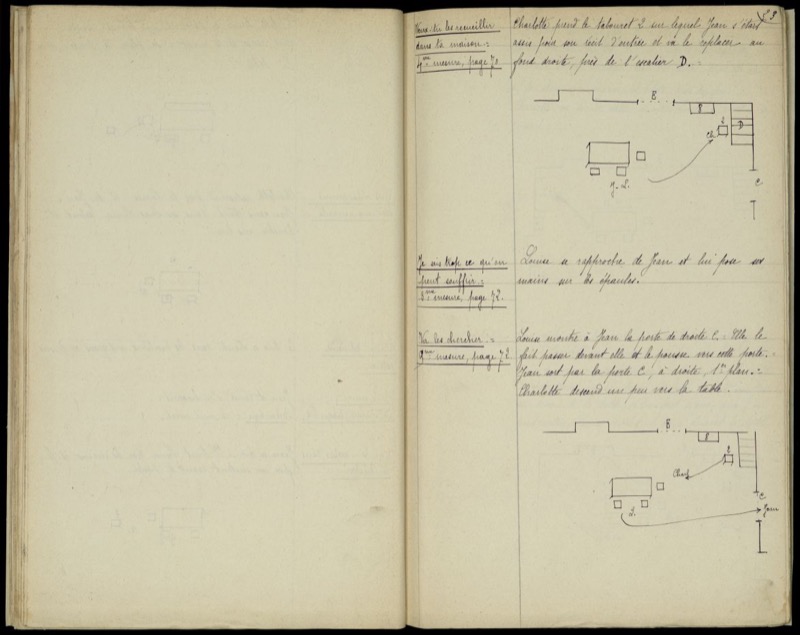 83
Viens-tu les recueillir
dans ta maison =
4me mesure, page 70
Charlotte prend le tabouret 2 sur lequel Jean s'était
assis pour son récit d'entrée et va le replacer au
fond droite, près de l'escalier D. =
B
P
2
D
Ch.
C
J. L.
Je sais trop ce qu'on
peut souffrir =
3me mesure, page 72.
Louise se rapproche de Jean et lui pose ses
mains sur les épaules.
Va les chercher. =
9me mesure, page 72
Louise montre à Jean la porte de droite C. Elle le
fait passer devant elle et le pousse vers cette porte. =
Jean sort par la porte C, à droite, 1er plan. =
Charlotte descend un peu vers la table.
B
P
2
Charl
C
Jean
L.